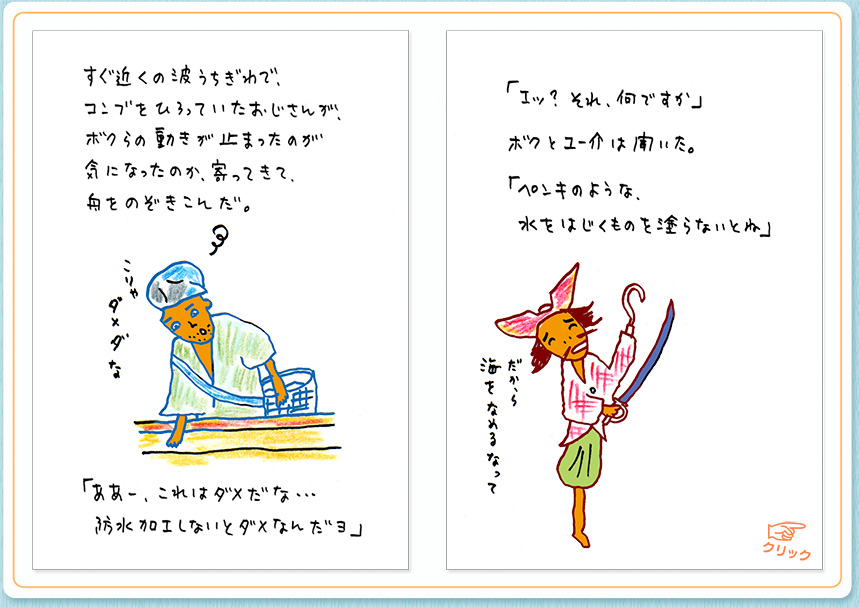 すぐ近くの波うちぎわで、
コンブをひろっていたおじさんが、
ボクらの動きが止まったのが
気になったのか、寄ってきて、
舟をのぞきこんだ。
こりゃ
ダメダな
「ああー、これはダメだな…
防水加工しないとダメなんだヨ」
「エッ？それ、何ですか」
ボクとユー介は聞いた。
「ペンキのような、
水をはじくものを塗らないとね」
だから
海をなめるなって
クリック